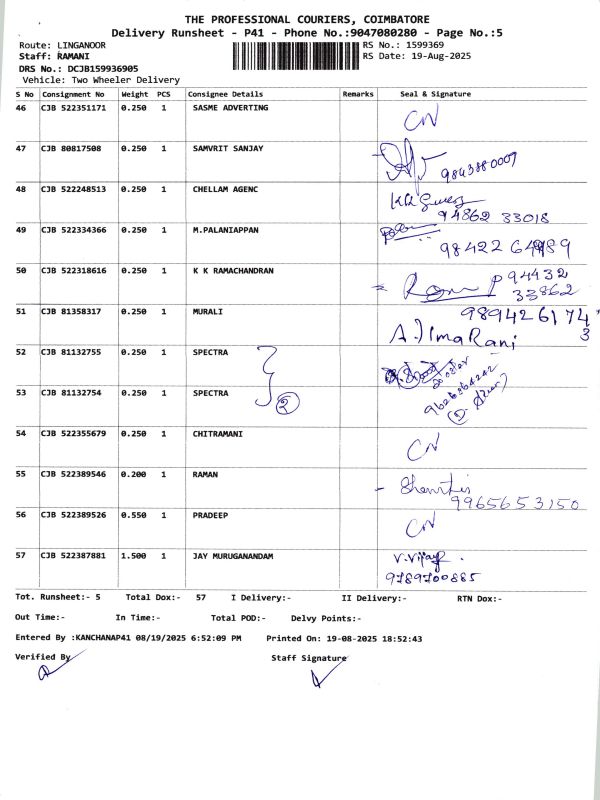 THE PROFESSIONAL COURIERS, COIMBATORE
Delivery Runsheet - P41 - Phone No.:9047080280 - Page No.:5
Route: LINGANOOR RS No.: 1599369
Staff: RAMANI RS Date: 19-Aug-2025
DRS No.: DCJB159936905
Vehicle: Two Wheeler Delivery
S No Consignment No Weight PCS Consignee Details Remarks Seal & Signature
46 CJB 522351171 0.250 1 SASME ADVERTING CN
47 CJB 80817508 0.250 1 SAMVRIT SANJAY 9843880007
48 CJB 522248513 0.250 1 CHELLAM AGENC
94862 33018
49 CJB 522334366 0.250 1 M.PALANIAPPAN
50 CJB 522318616 0.250 1 K K RAMACHANDRAN 94432
33862
51 CJB 81358317 0.250 1 MURALI 989426174
3
52 CJB 81132755 0.250 1 SPECTRA
53 CJB 81132754 0.250 1 SPECTRA 2
54 CJB 522355679 0.250 1 CHITRAMANI CN
55 CJB 522389546 0.200 1 RAMAN
9965653150
56 CJB 522389526 0.550 1 PRADEEP CN
57 CJB 522387881 1.500 1 JAY MURUGANANDAM V.Vijay
9789700885
Tot. Runsheet:- 5 Total Dox:- 57 I Delivery:- II Delivery:- RTN Dox:-
Out Time:- In Time:- Total POD:- Delvy Points:-
Entered By :KANCHANAP41 08/19/2025 6:52:09 PM Printed On: 19-08-2025 18:52:43
Verified By Staff Signature